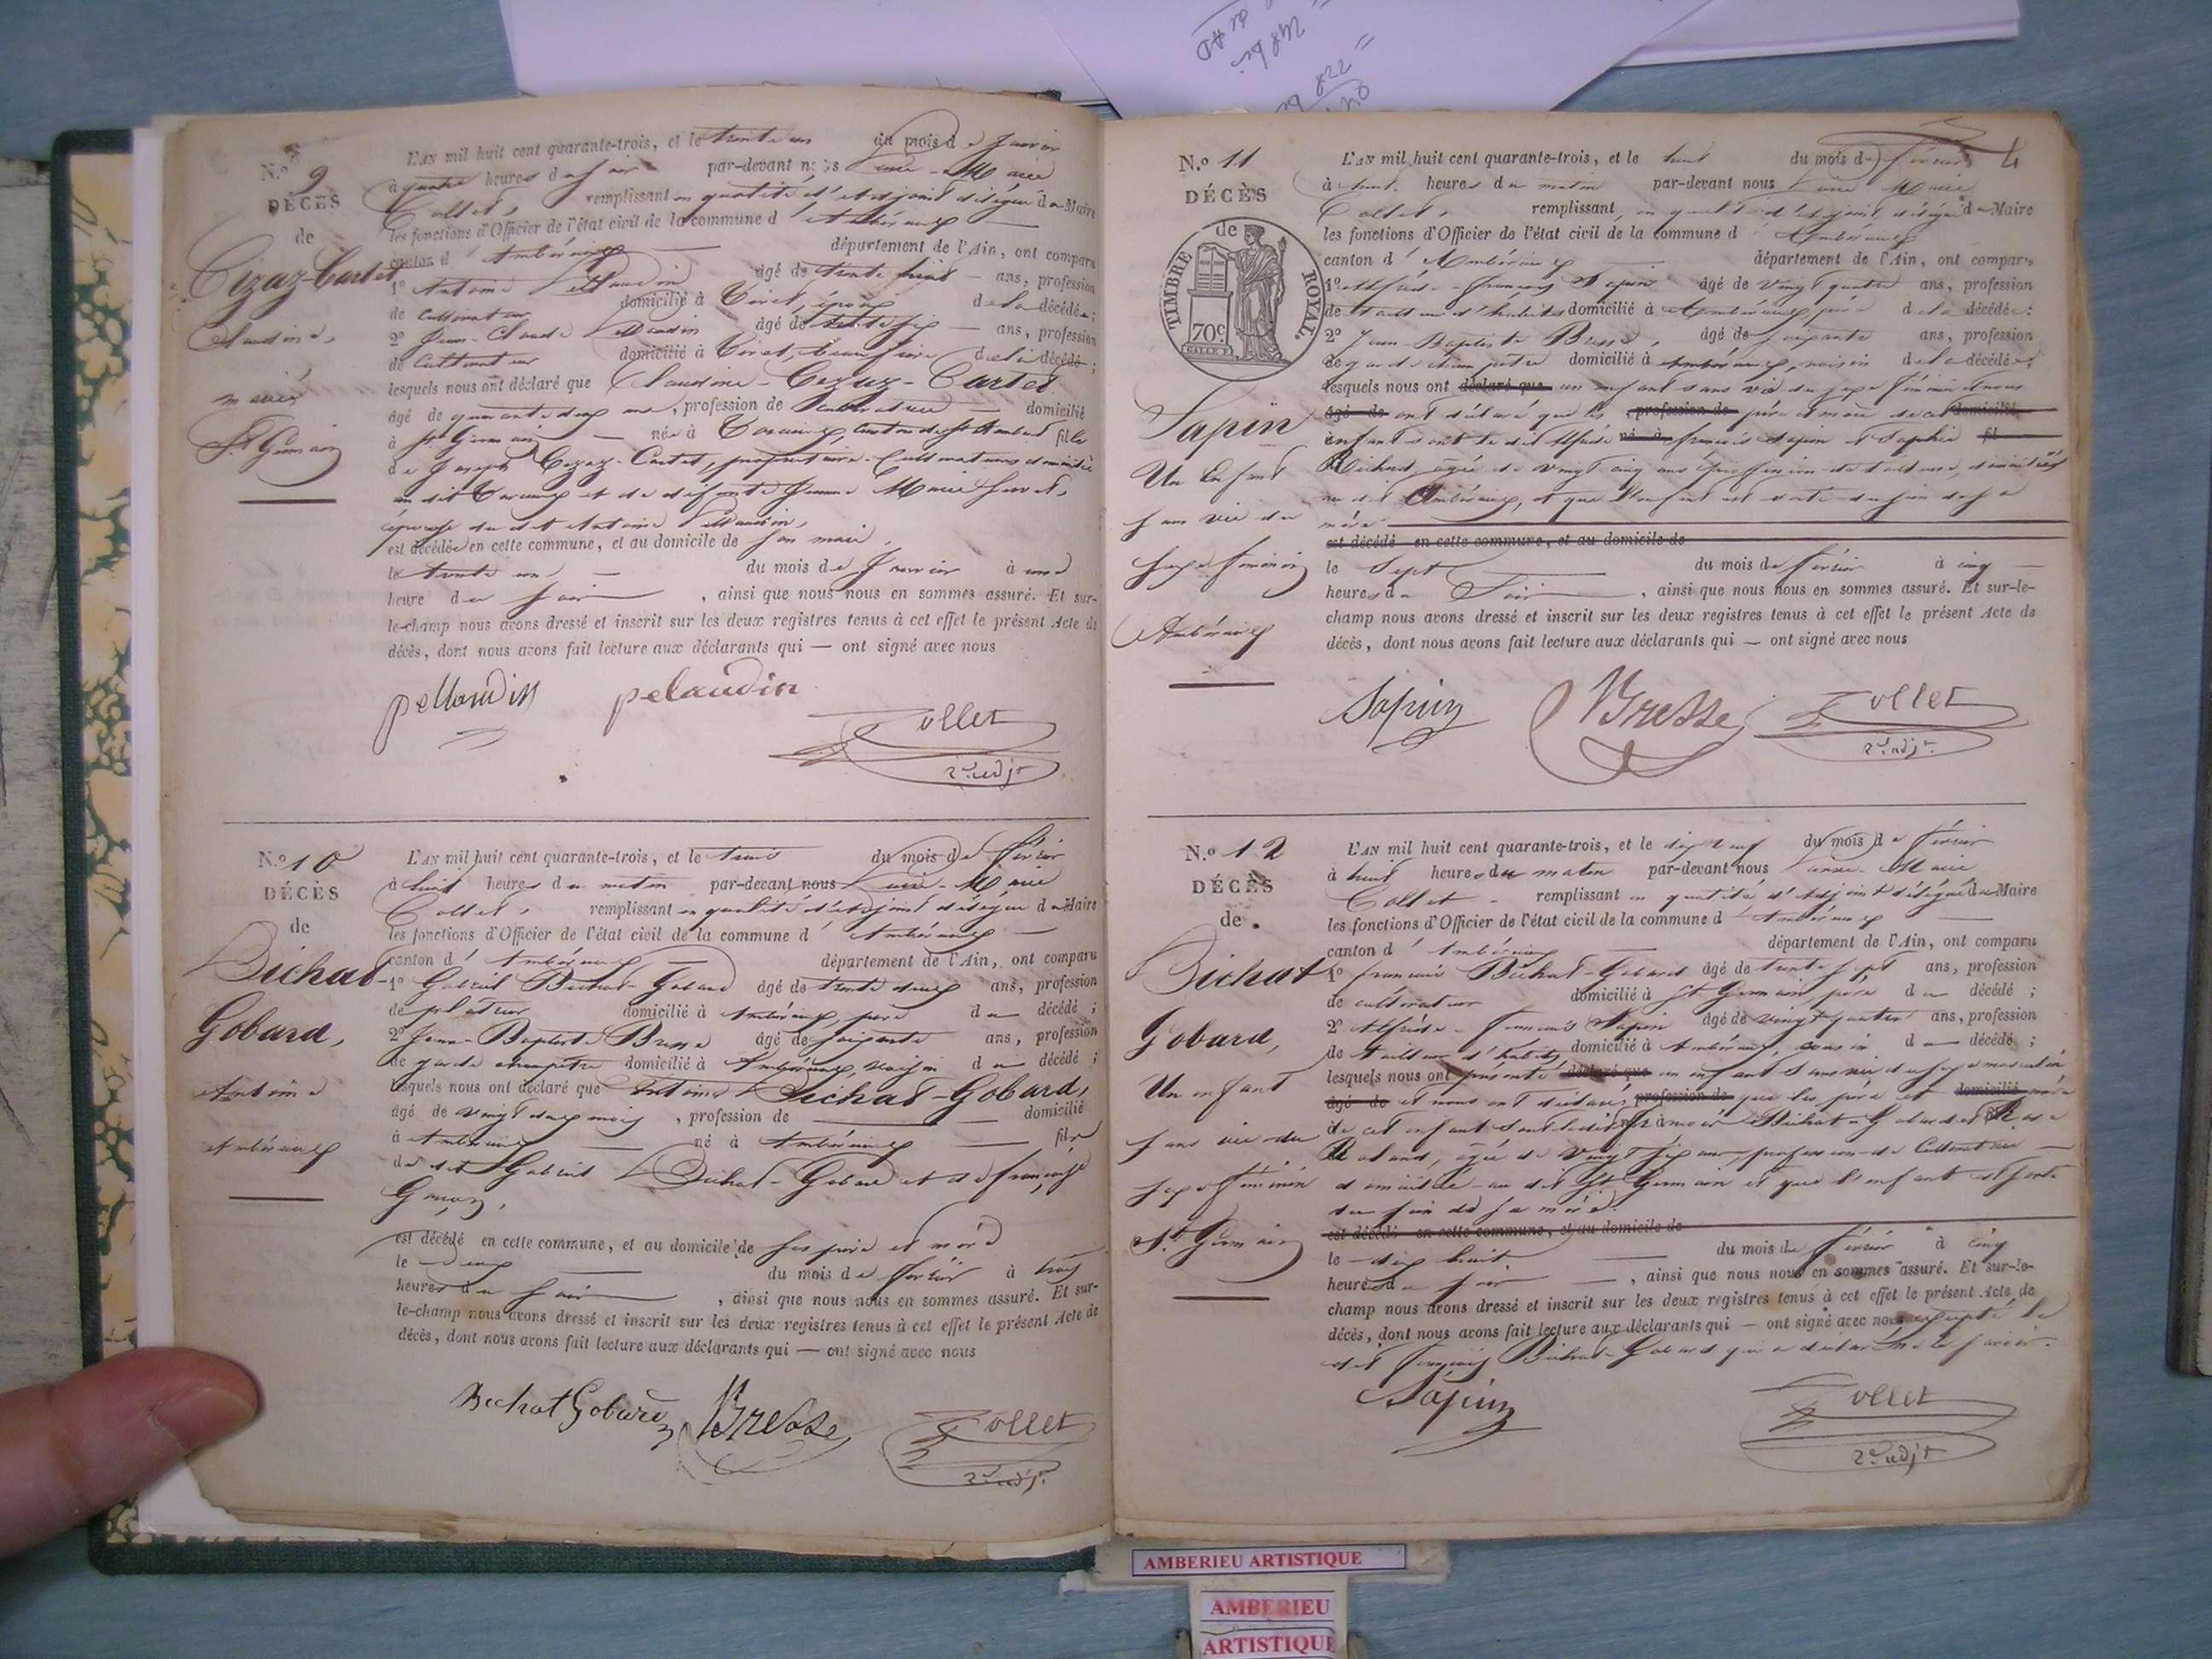 N.º 9
DÉCÈS
de
Cizaz-Cartet
Claudine,
mariée
St Germain
L'AN mil huit cent quarante-trois, et le trente un du mois de Janvier
à quatre heures du soir par-devant nous Marie
Collet, remplissant en qualité d'adjoint délégué du Maire
les fonctions d'Officier de l'état civil de la commune d' Ambérieux
canton d' Ambérieux département de l'Ain, ont comparu
1º Antoine Pellaudin âgé de trente huit ans, profession
de cultivateur domicilié à Tiret, époux de la décédée;
2º Jean-Claude Pellaudin âgé de trente six ans, profession
de cultivateur domicilié à Tiret, beau frère de la décédée;
lesquels nous ont déclaré que Claudine-Cizaz-Cartet
âgé de quarante deux ans, profession de cultivatrice domicilié
à St Germain née à canton de St Rambert fille
de Joseph Cizaz-Cartet, propriétaire-Cultivateur domicilié
au dit et de défunte Jeanne Marie
épouse du dit Antoine Pellaudin,
est décédée en cette commune, et au domicile de son mari,
le trente un du mois de Janvier à une
heure du soir, ainsi que nous nous en sommes assuré. Et sur-
le-champ nous avons dressé et inscrit sur les deux registres tenus à cet effet le présent Acte de
décès, dont nous avons fait lecture aux déclarants qui — ont signé avec nous
pellaudin pelaudin
Collet
2.e adjt
N.º 10
DÉCÈS
de
Bichat-
Gobard,
Antoine
Ambérieux
L'AN mil huit cent quarante-trois, et le trois du mois de février
à huit heures du matin par-devant nous Marie
Collet, remplissant en qualité d'adjoint délégué du Maire
les fonctions d'Officier de l'état civil de la commune d' Ambérieux
canton d' Ambérieux département de l'Ain, ont comparu
1º Gabriel Bichat-Gobard âgé de trente deux ans, profession
de plâtrier domicilié à Ambérieux, père du décédé;
2º Jean-Baptiste Bresse âgé de soixante ans, profession
de garde champêtre domicilié à Ambérieux, voisin du décédé;
lesquels nous ont déclaré que Antoine Bichat-Gobard,
âgé de vingt deux mois, profession de domicilié
à Ambérieux né à Ambérieux fils
du dit Gabriel Bichat-Gobard et de françoise
est décédé en cette commune, et au domicile de ses père et mère
le deux du mois de février à trois
heures du soir, ainsi que nous nous en sommes assuré. Et sur-
le-champ nous avons dressé et inscrit sur les deux registres tenus à cet effet le présent Acte de
décès, dont nous avons fait lecture aux déclarants qui — ont signé avec nous
Bichat Gobard Bresse Collet
2.e adjt
4
N.º 11
DÉCÈS
de
TIMBRE ROYAL.
70c
Sapin
Un Enfant
sans vie du
sexe féminin
Ambérieux
L'AN mil huit cent quarante-trois, et le huit du mois de février
à huit heures du matin par-devant nous Marie
Collet, remplissant en qualité d'adjoint délégué du Maire
les fonctions d'Officier de l'état civil de la commune d' Ambérieux
canton d' Ambérieux département de l'Ain, ont comparu
1º Alfride-françois Sapin âgé de vingt quatre ans, profession
de tailleur d'habits domicilié à Ambérieux, père de la décédée;
2º Jean-Baptiste Bresse, âgé de soixante ans, profession
de garde champêtre domicilié à Ambérieux, voisin de la décédée;
lesquels nous ont déclaré que un enfant sans vie du sexe féminin et nous
âgé de ont déclaré que les profession de père et mère de cet domicilié
enfant sont le dit Alfride né à françois Sapin et Sophie fil
Richard, âgée de vingt cinq ans, profession de tailleuse, domiciliés
au dit Ambérieux, et que l'enfant est sorti du sein de sa
mère.
est décédé en cette commune, et au domicile de
le sept du mois de février à cinq
heures du soir, ainsi que nous nous en sommes assuré. Et sur-le-
champ nous avons dressé et inscrit sur les deux registres tenus à cet effet le présent Acte de
décès, dont nous avons fait lecture aux déclarants qui — ont signé avec nous
Sapin Bresse Collet
2.e adjt
N.º 12
DÉCÈS
de
Bichat
Gobard,
Un enfant
sans vie du
sexe féminin
St Germain
L'AN mil huit cent quarante-trois, et le dix neuf du mois de février
à huit heures du matin par-devant nous Marie
Collet remplissant en qualité d'adjoint délégué du Maire
les fonctions d'Officier de l'état civil de la commune d' Ambérieux
canton d' Ambérieux département de l'Ain, ont comparu
1º françois Bichat-Gobard âgé de trente sept ans, profession
de cultivateur domicilié à St Germain, père du décédé;
2º Alfride-François Sapin âgé de vingt quatre ans, profession
de tailleur d'habits domicilié à Ambérieux, cousin du décédé;
lesquels nous ont présenté déclaré que un enfant sans vie du sexe masculin
âgé de et nous ont déclaré profession de que les père et domicilié mère
de cet enfant sont le dit françois Bichat-Gobard et Rose
Roland, âgée de vingt six ans, profession de Cultivatrice
domiciliée au dit St Germain et que l'enfant est sorti
du sein de sa mère.
est décédé en cette commune, et au domicile de
le dix huit du mois de février à cinq
heures du soir, ainsi que nous nous en sommes assuré. Et sur-le-
champ nous avons dressé et inscrit sur les deux registres tenus à cet effet le présent Acte de
décès, dont nous avons fait lecture aux déclarants qui — ont signé avec nous excepté le
dit François Bichat-Gobard qui a déclaré ne le savoir.
Sapin Collet
2.e adjt
AMBERIEU ARTISTIQUE
AMBERIEU
ARTISTIQUE